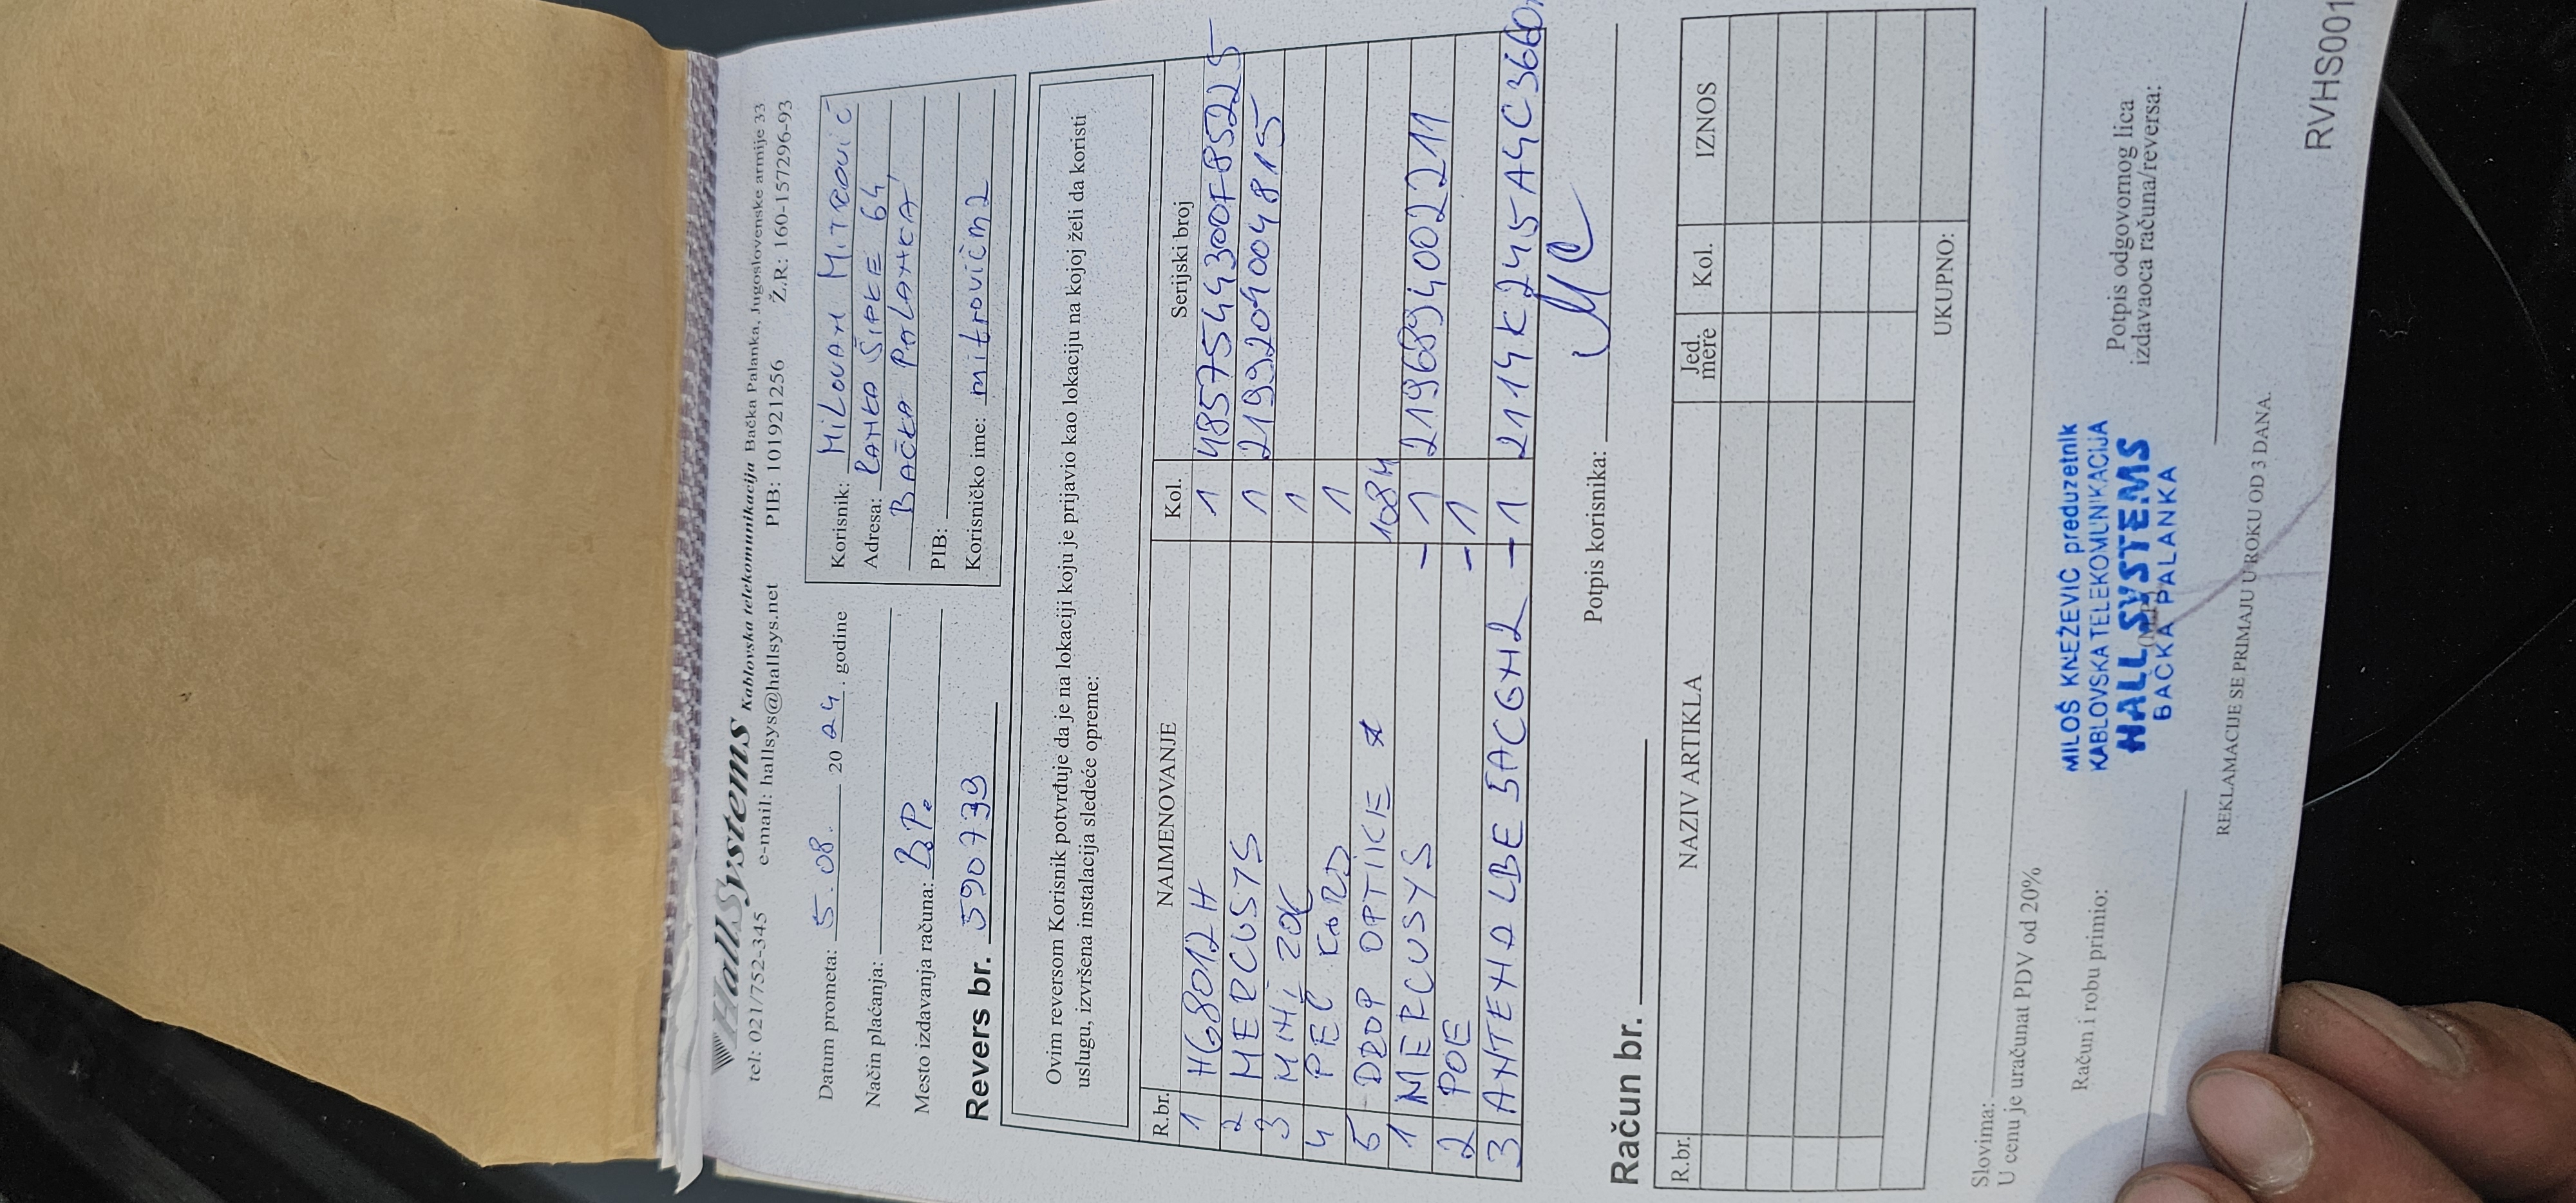 HallSystems Kablovska telekomunikacija Bačka Palanka, Jugoslovenske armije 33
tel: 021/752-345 e-mail: hallsys@hallsys.net PIB: 101921256 Ž.R: 160-157296-93
Datum prometa: 5.08. 2024. godine
Način plaćanja:
Mesto izdavanja računa: B.P.
Revers br. 590739
Korisnik: MILOVAN MITROVIĆ
Adresa: RANKA ŠIPKE 64
BAČKA PALANKA
PIB:
Korisničko ime: mitrovićm2
Ovim reversom Korisnik potvrđuje da je na lokaciji koju je prijavio kao lokaciju na kojoj želi da koristi
uslugu, izvršena instalacija sledeće opreme:
R.br. NAIMENOVANJE Kol. Serijski broj
1 HG8012H 1 4857544300F85225
2 MERCUSYS 1 2199209004815
3 MINI ZOK 1
4 PEČ KORD 1
5 DROP OPTIKE 108M
1 MERCUSYS -1 2196894002211
2 POE -1
3 ANTENA LBE 5ACGEN2 -1 2114K245A4C366
Potpis korisnika:
Račun br.
R.br. NAZIV ARTIKLA Jed. mere Kol. IZNOS
UKUPNO:
Slovima:
U cenu je uračunat PDV od 20%
Račun i robu primio:
MILOŠ KNEŽEVIĆ preduzetnik
KABLOVSKA TELEKOMUNIKACIJA
HALLSYSTEMS
BAČKA PALANKA
Potpis odgovornog lica
izdavaoca računa/reversa:
REKLAMACIJE SE PRIMAJU U ROKU OD 3 DANA.
RVHS001